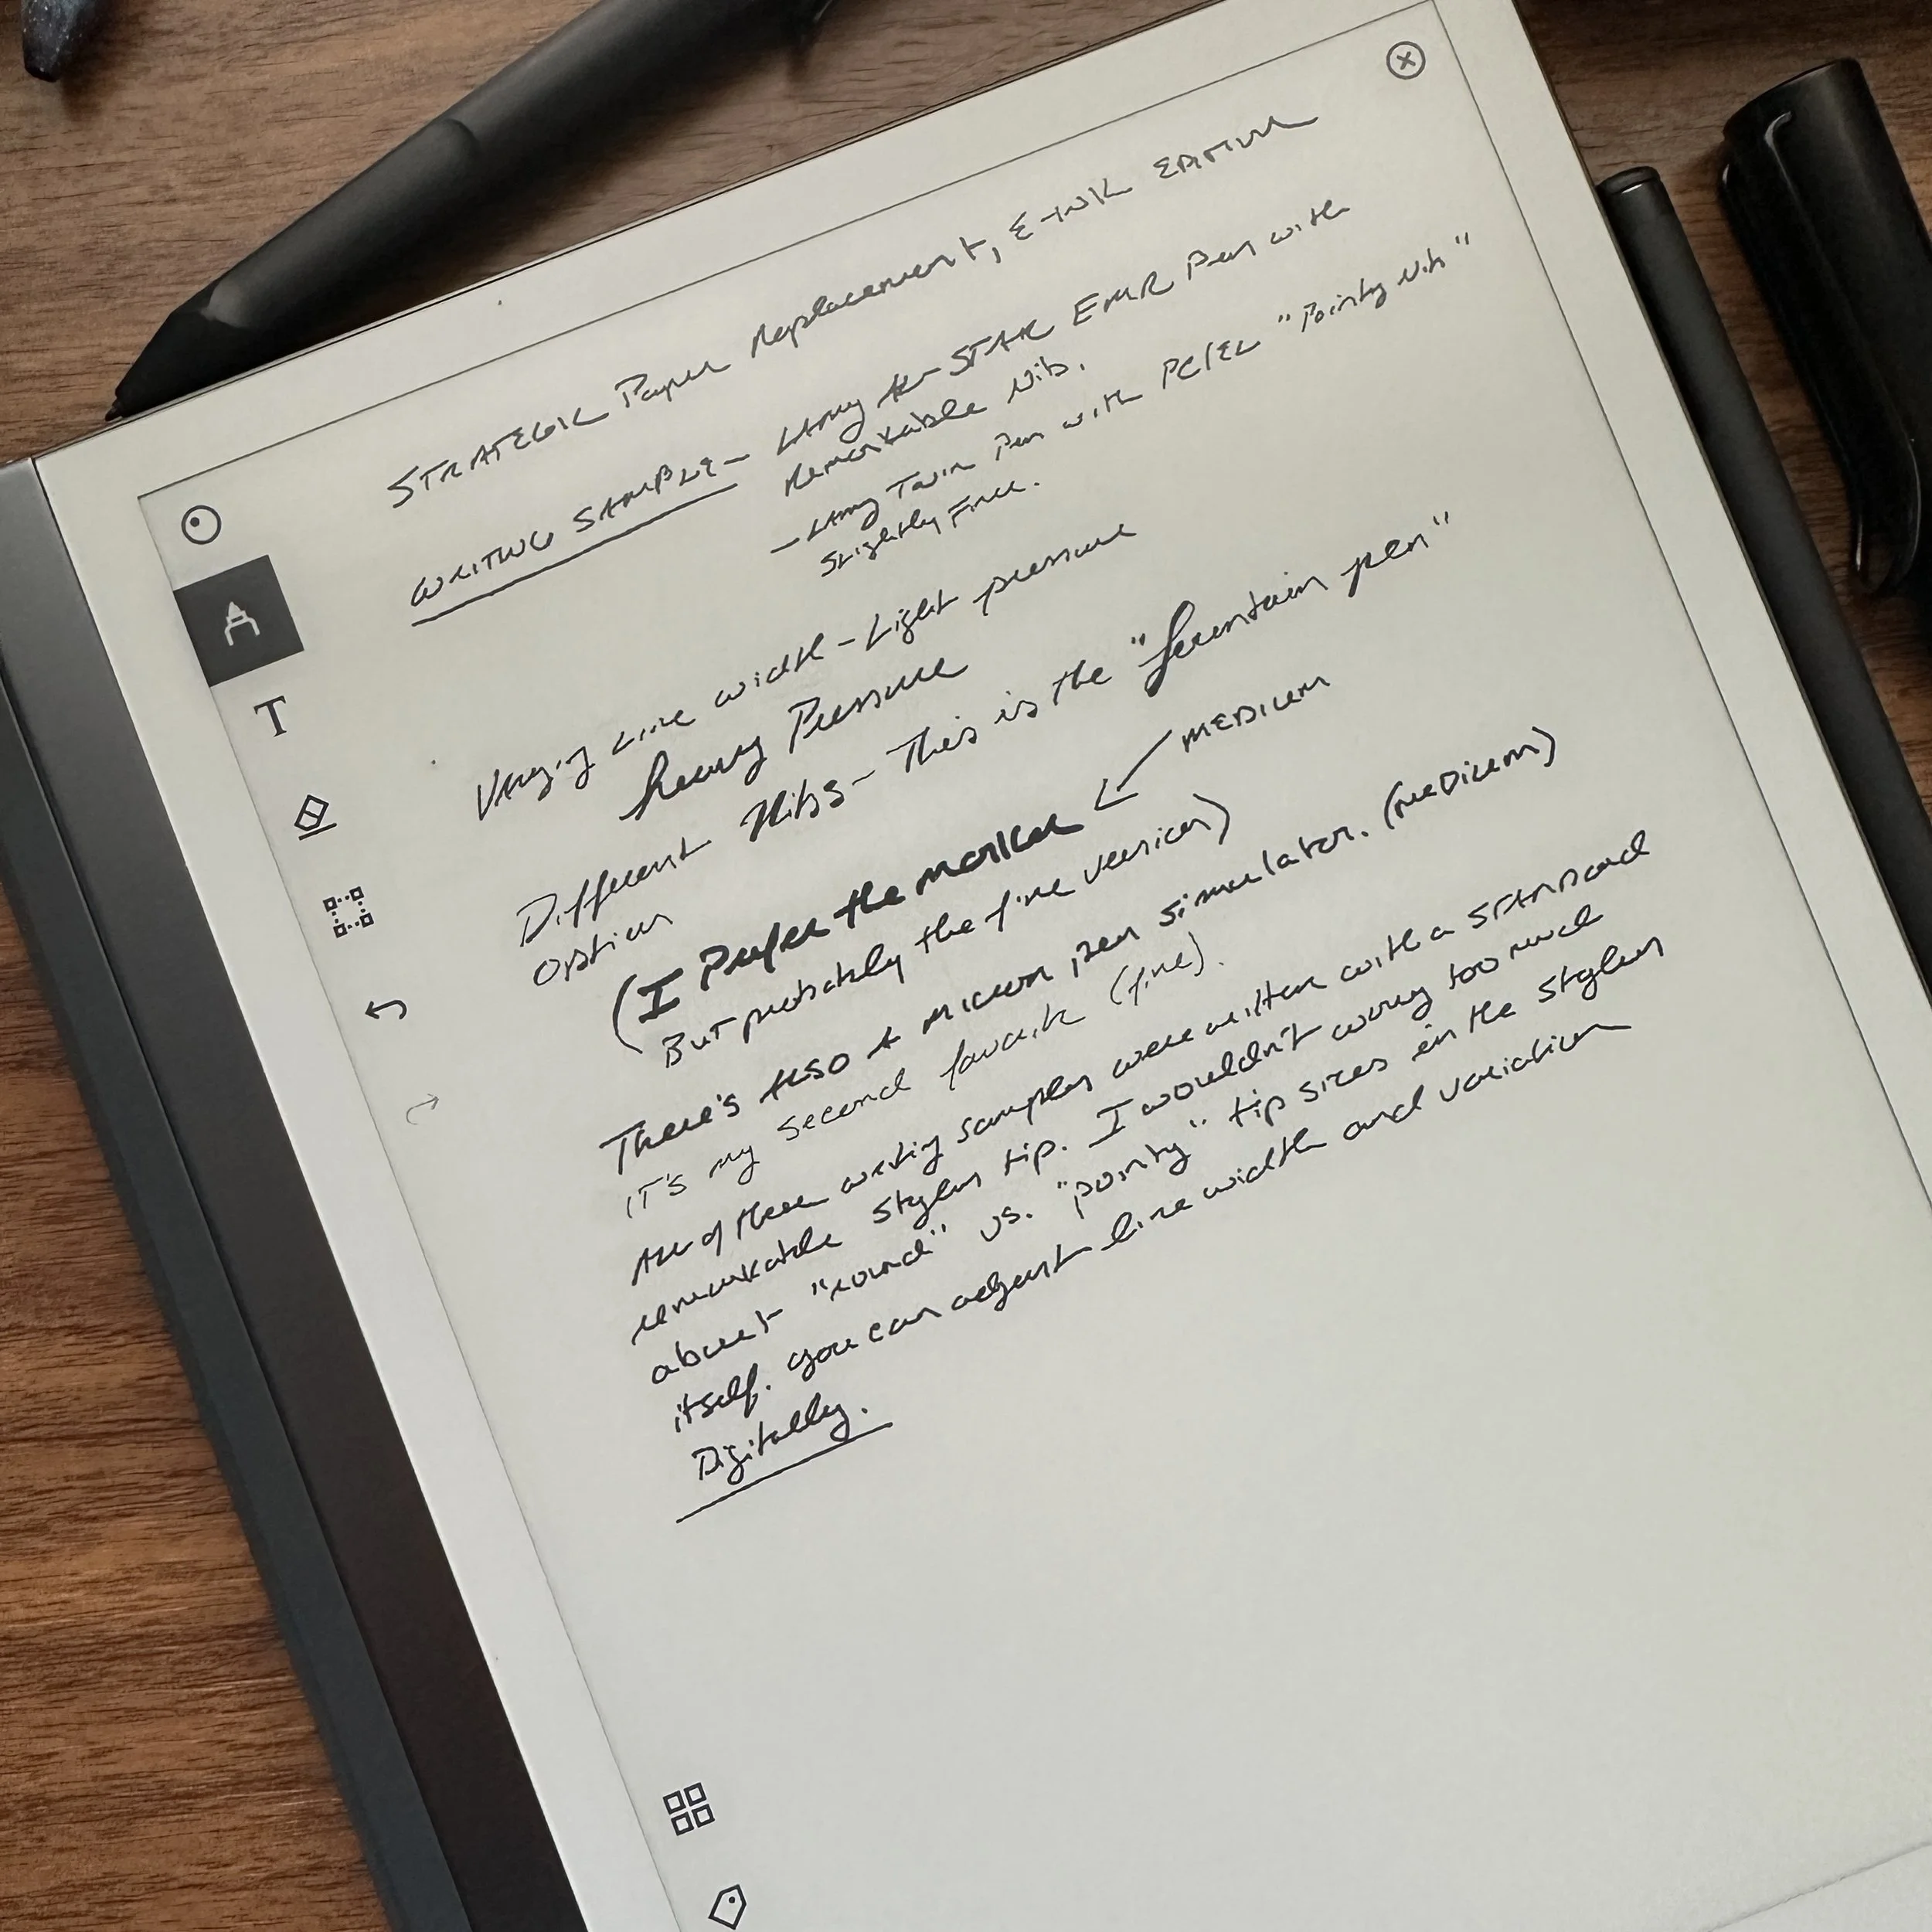 STRATEGIC Paper Replacement, E-INK EDITION
WRITING SAMPLE - LAMY AL-STAR EMR Pen with
Remarkable Nib.
- LAMY Twin Pen with PC/EL "Pointy Nib"
Slightly Finer.
Varying Line width - Light pressure
heavy Pressure
Different Nibs - This is the "fountain pen"
option
MEDIUM
(I Prefer the marker
But probably the fine version)
There's also a micron pen simulator. (MEDIUM)
IT's my second favorite (fine).
All of these writing samples were written with a STANDARD
remarkable stylus tip. I wouldn't worry too much
about "round" vs. "pointy" tip sizes in the stylus
itself. you can adjust line width and variation
Digitally.
T